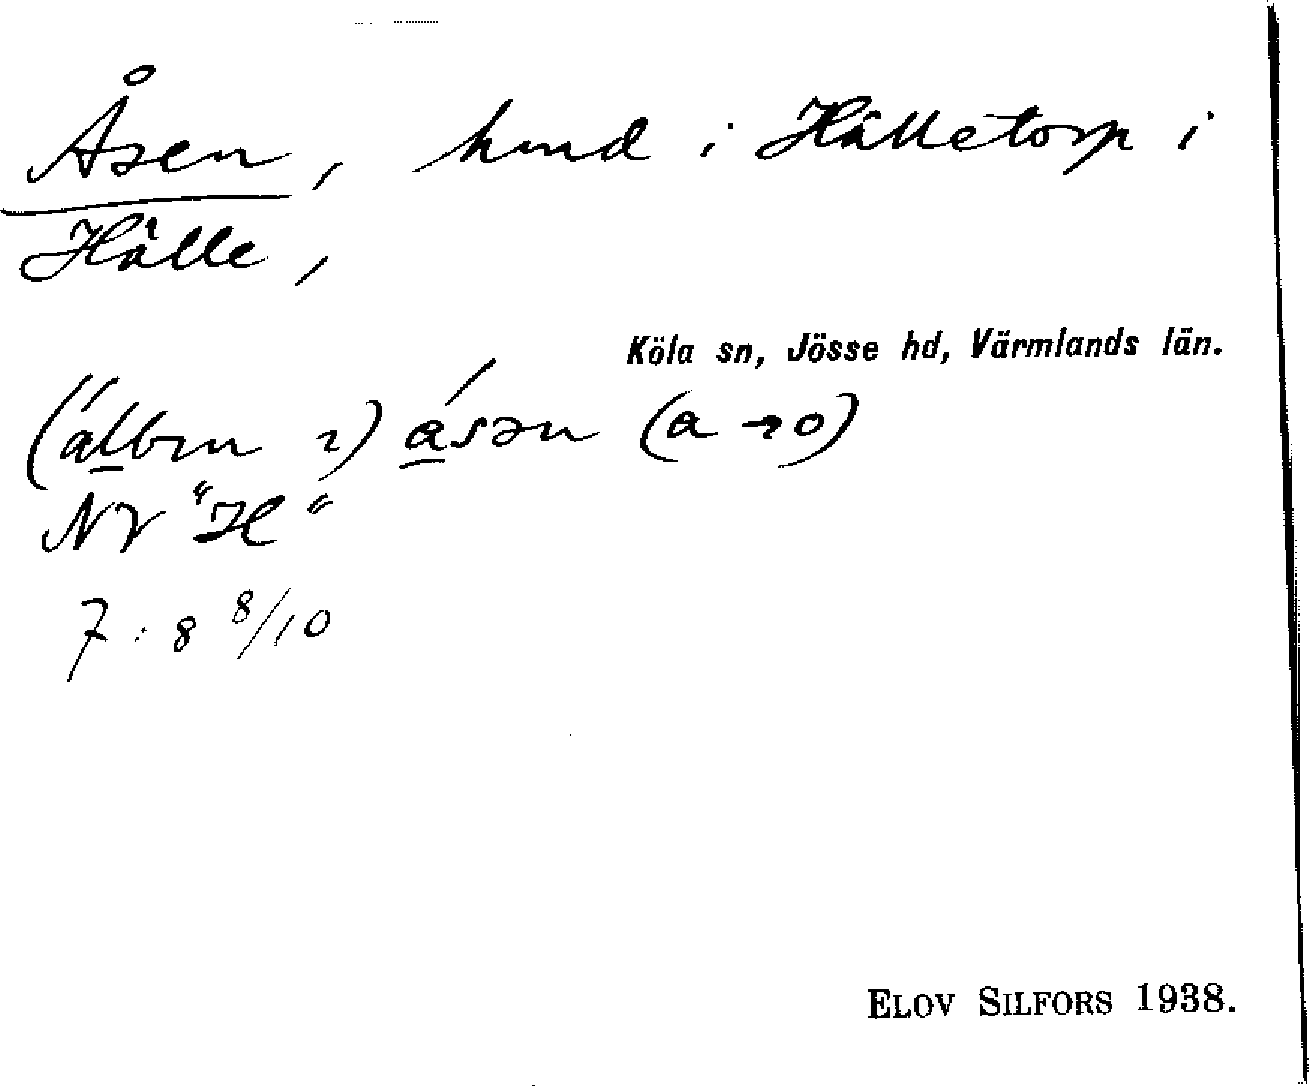 Åsen, hmd i Hälletorp i
Hälle,
Köla sn, Jösse hd, Värmlands län.
(a → o)
NV "H"
7:8 8/10
ELOV SILFORS 1938.